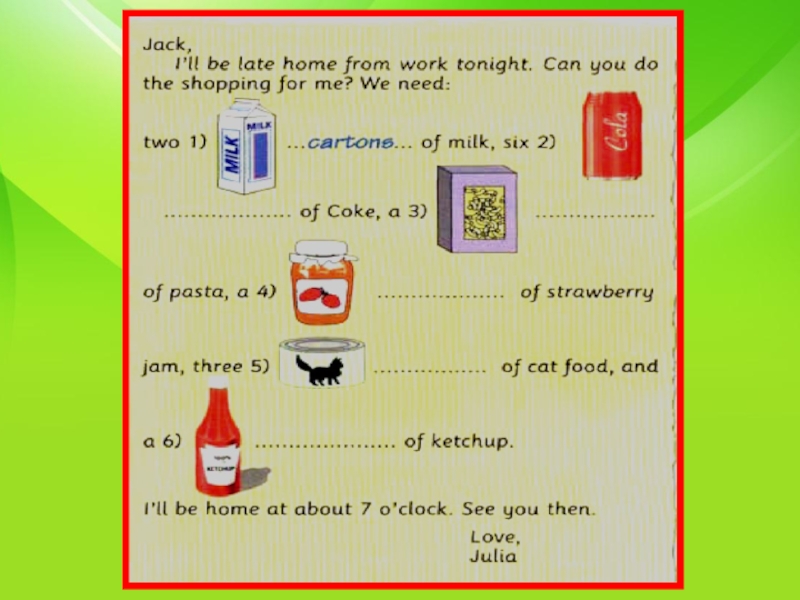 Jack,
I'll be late home from work tonight. Can you do
the shopping for me? We need:
two 1) MILK MILK ...cartons... of milk, six 2) Cola
................... of Coke, a 3) ..................
of pasta, a 4) ................... of strawberry
jam, three 5) ................. of cat food, and
a 6) KETCHUP ..................... of ketchup.
I'll be home at about 7 o'clock. See you then.
Love,
Julia